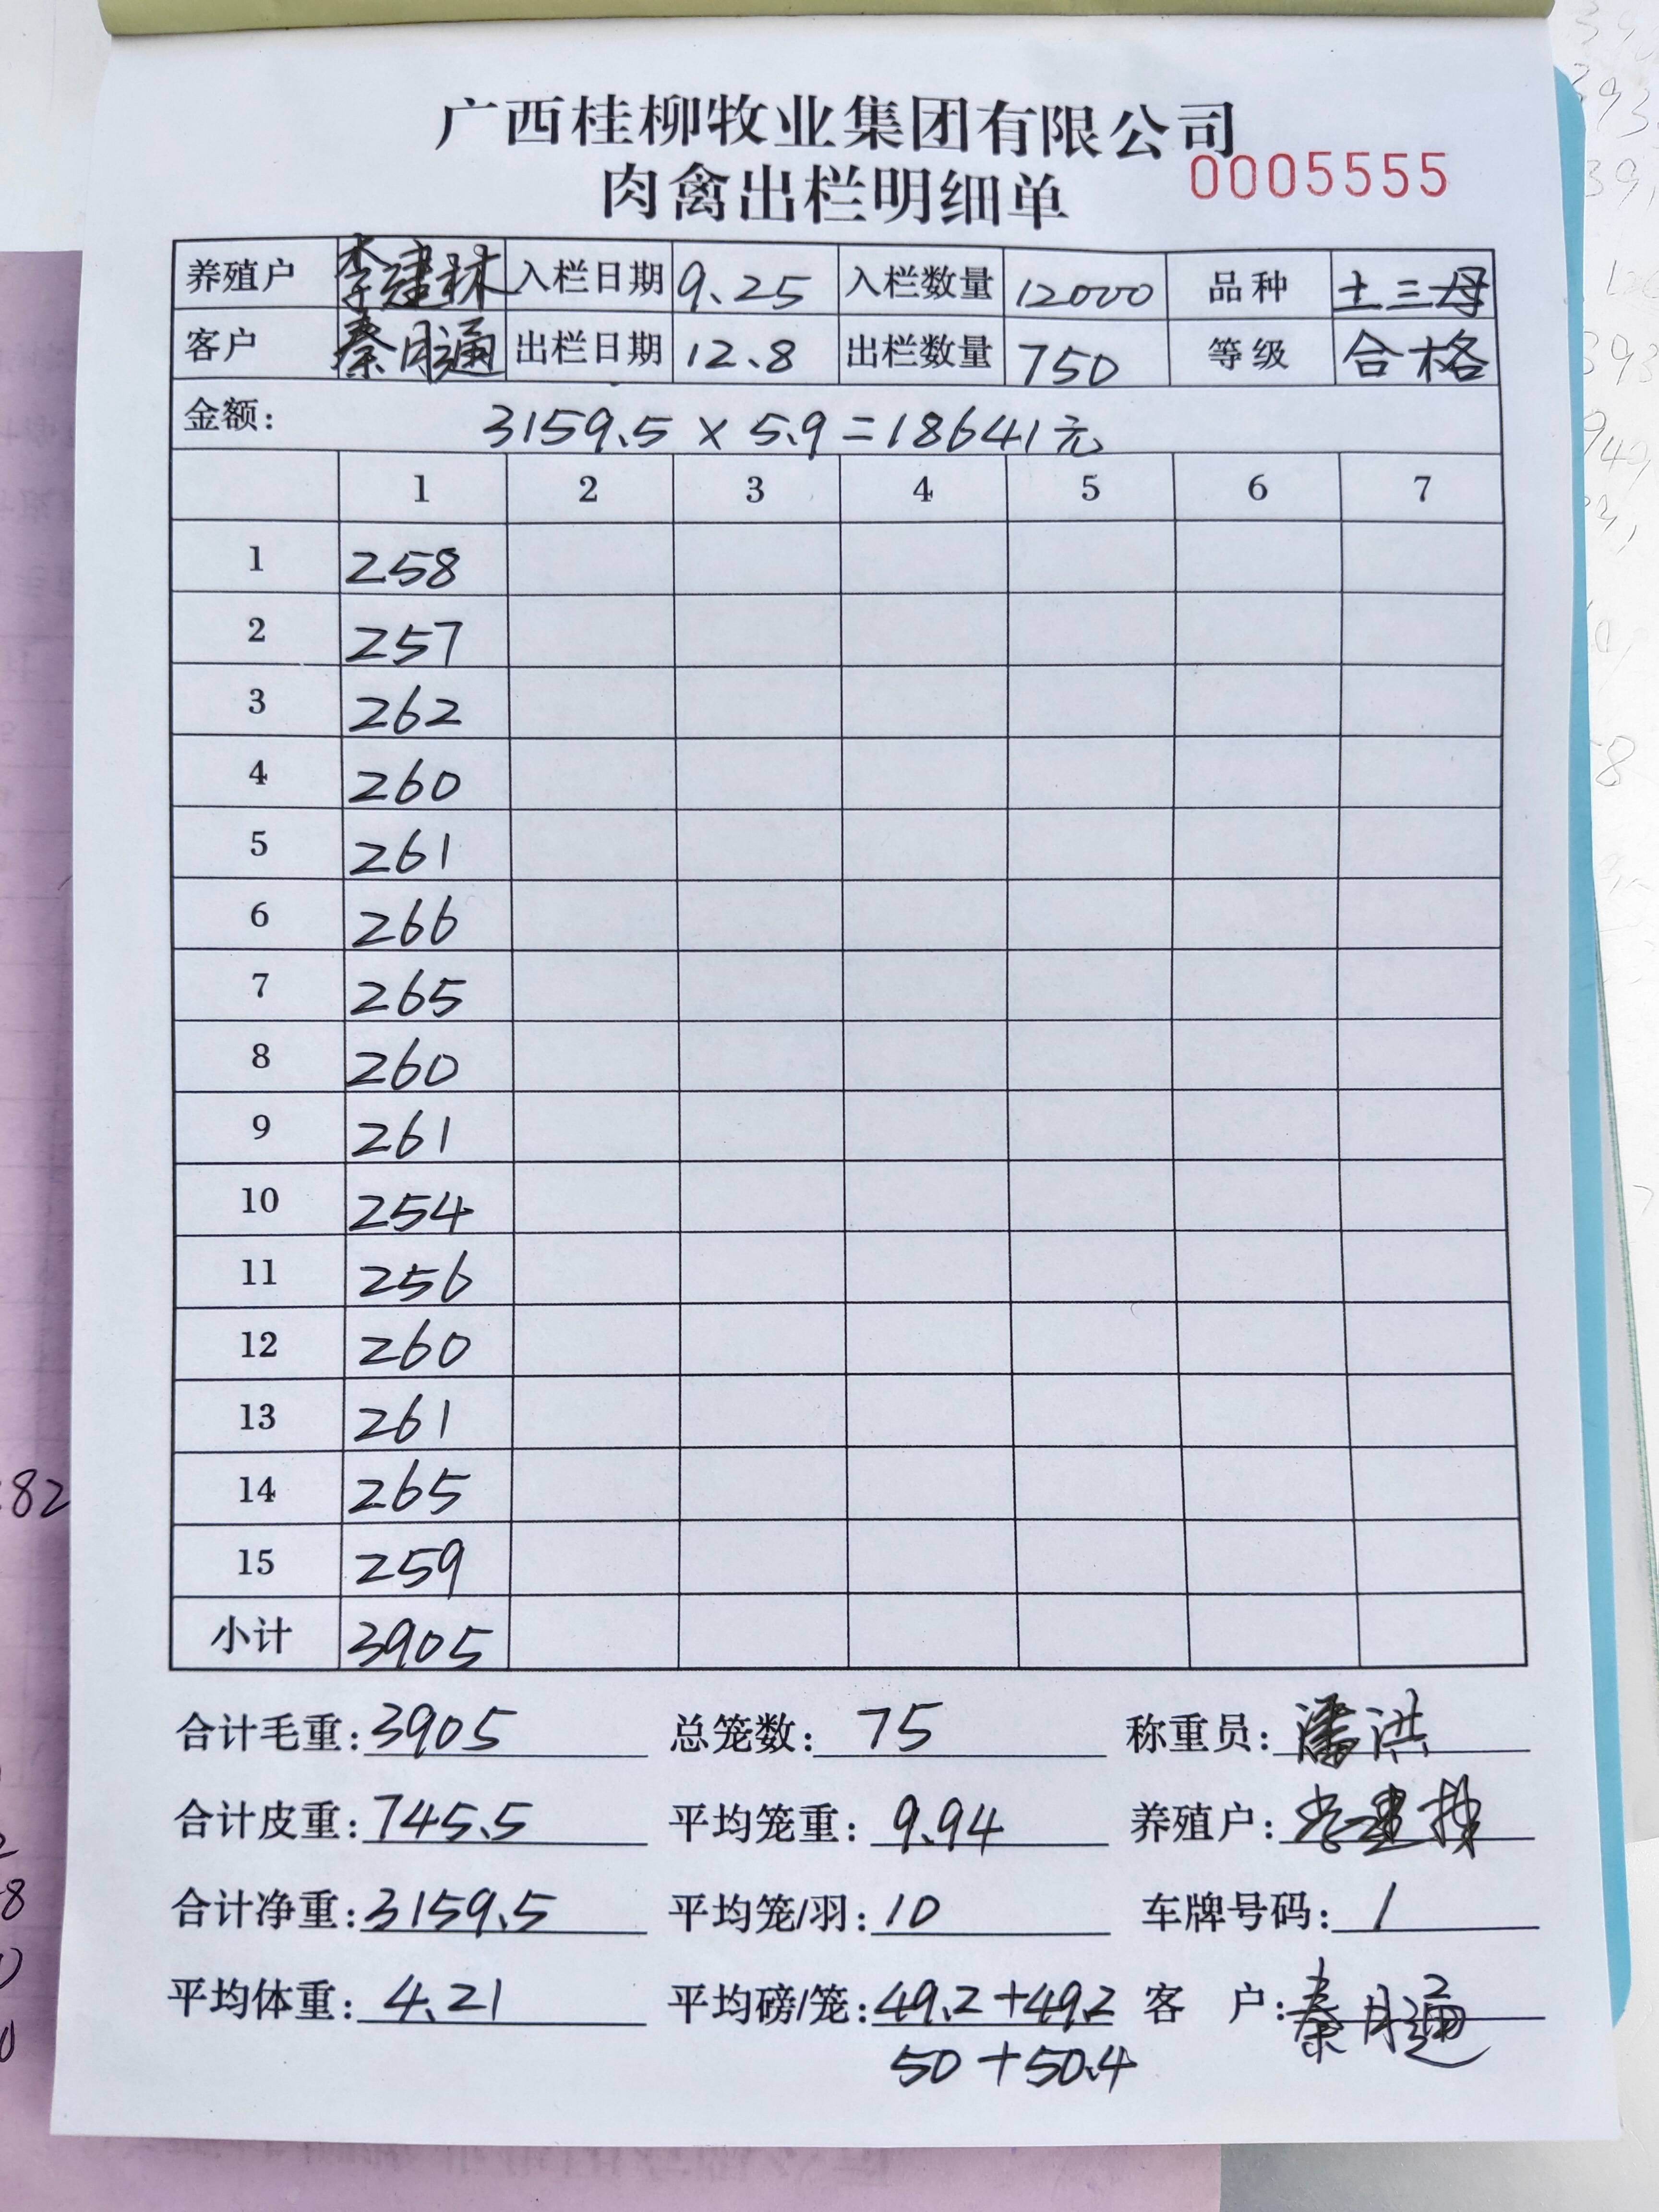 广西桂柳牧业集团有限公司
肉禽出栏明细单 0005555
养殖户 李建林 入栏日期 9.25 入栏数量 12000 品种 土三母
客户 秦月通 出栏日期 12.8 出栏数量 750 等级 合格
金额: 3159.5 × 5.9 = 18641元
1 2 3 4 5 6 7
1 258
2 257
3 262
4 260
5 261
6 266
7 265
8 260
9 261
10 254
11 256
12 260
13 261
14 265
15 259
小计 3905
合计毛重: 3905 总笼数: 75 称重员: 潘洪
合计皮重: 745.5 平均笼重: 9.94 养殖户: 李建林
合计净重: 3159.5 平均笼/羽: 10 车牌号码: 1
平均体重: 4.21 平均磅/笼: 49.2+49.2 客 户: 秦月通
50+50.4